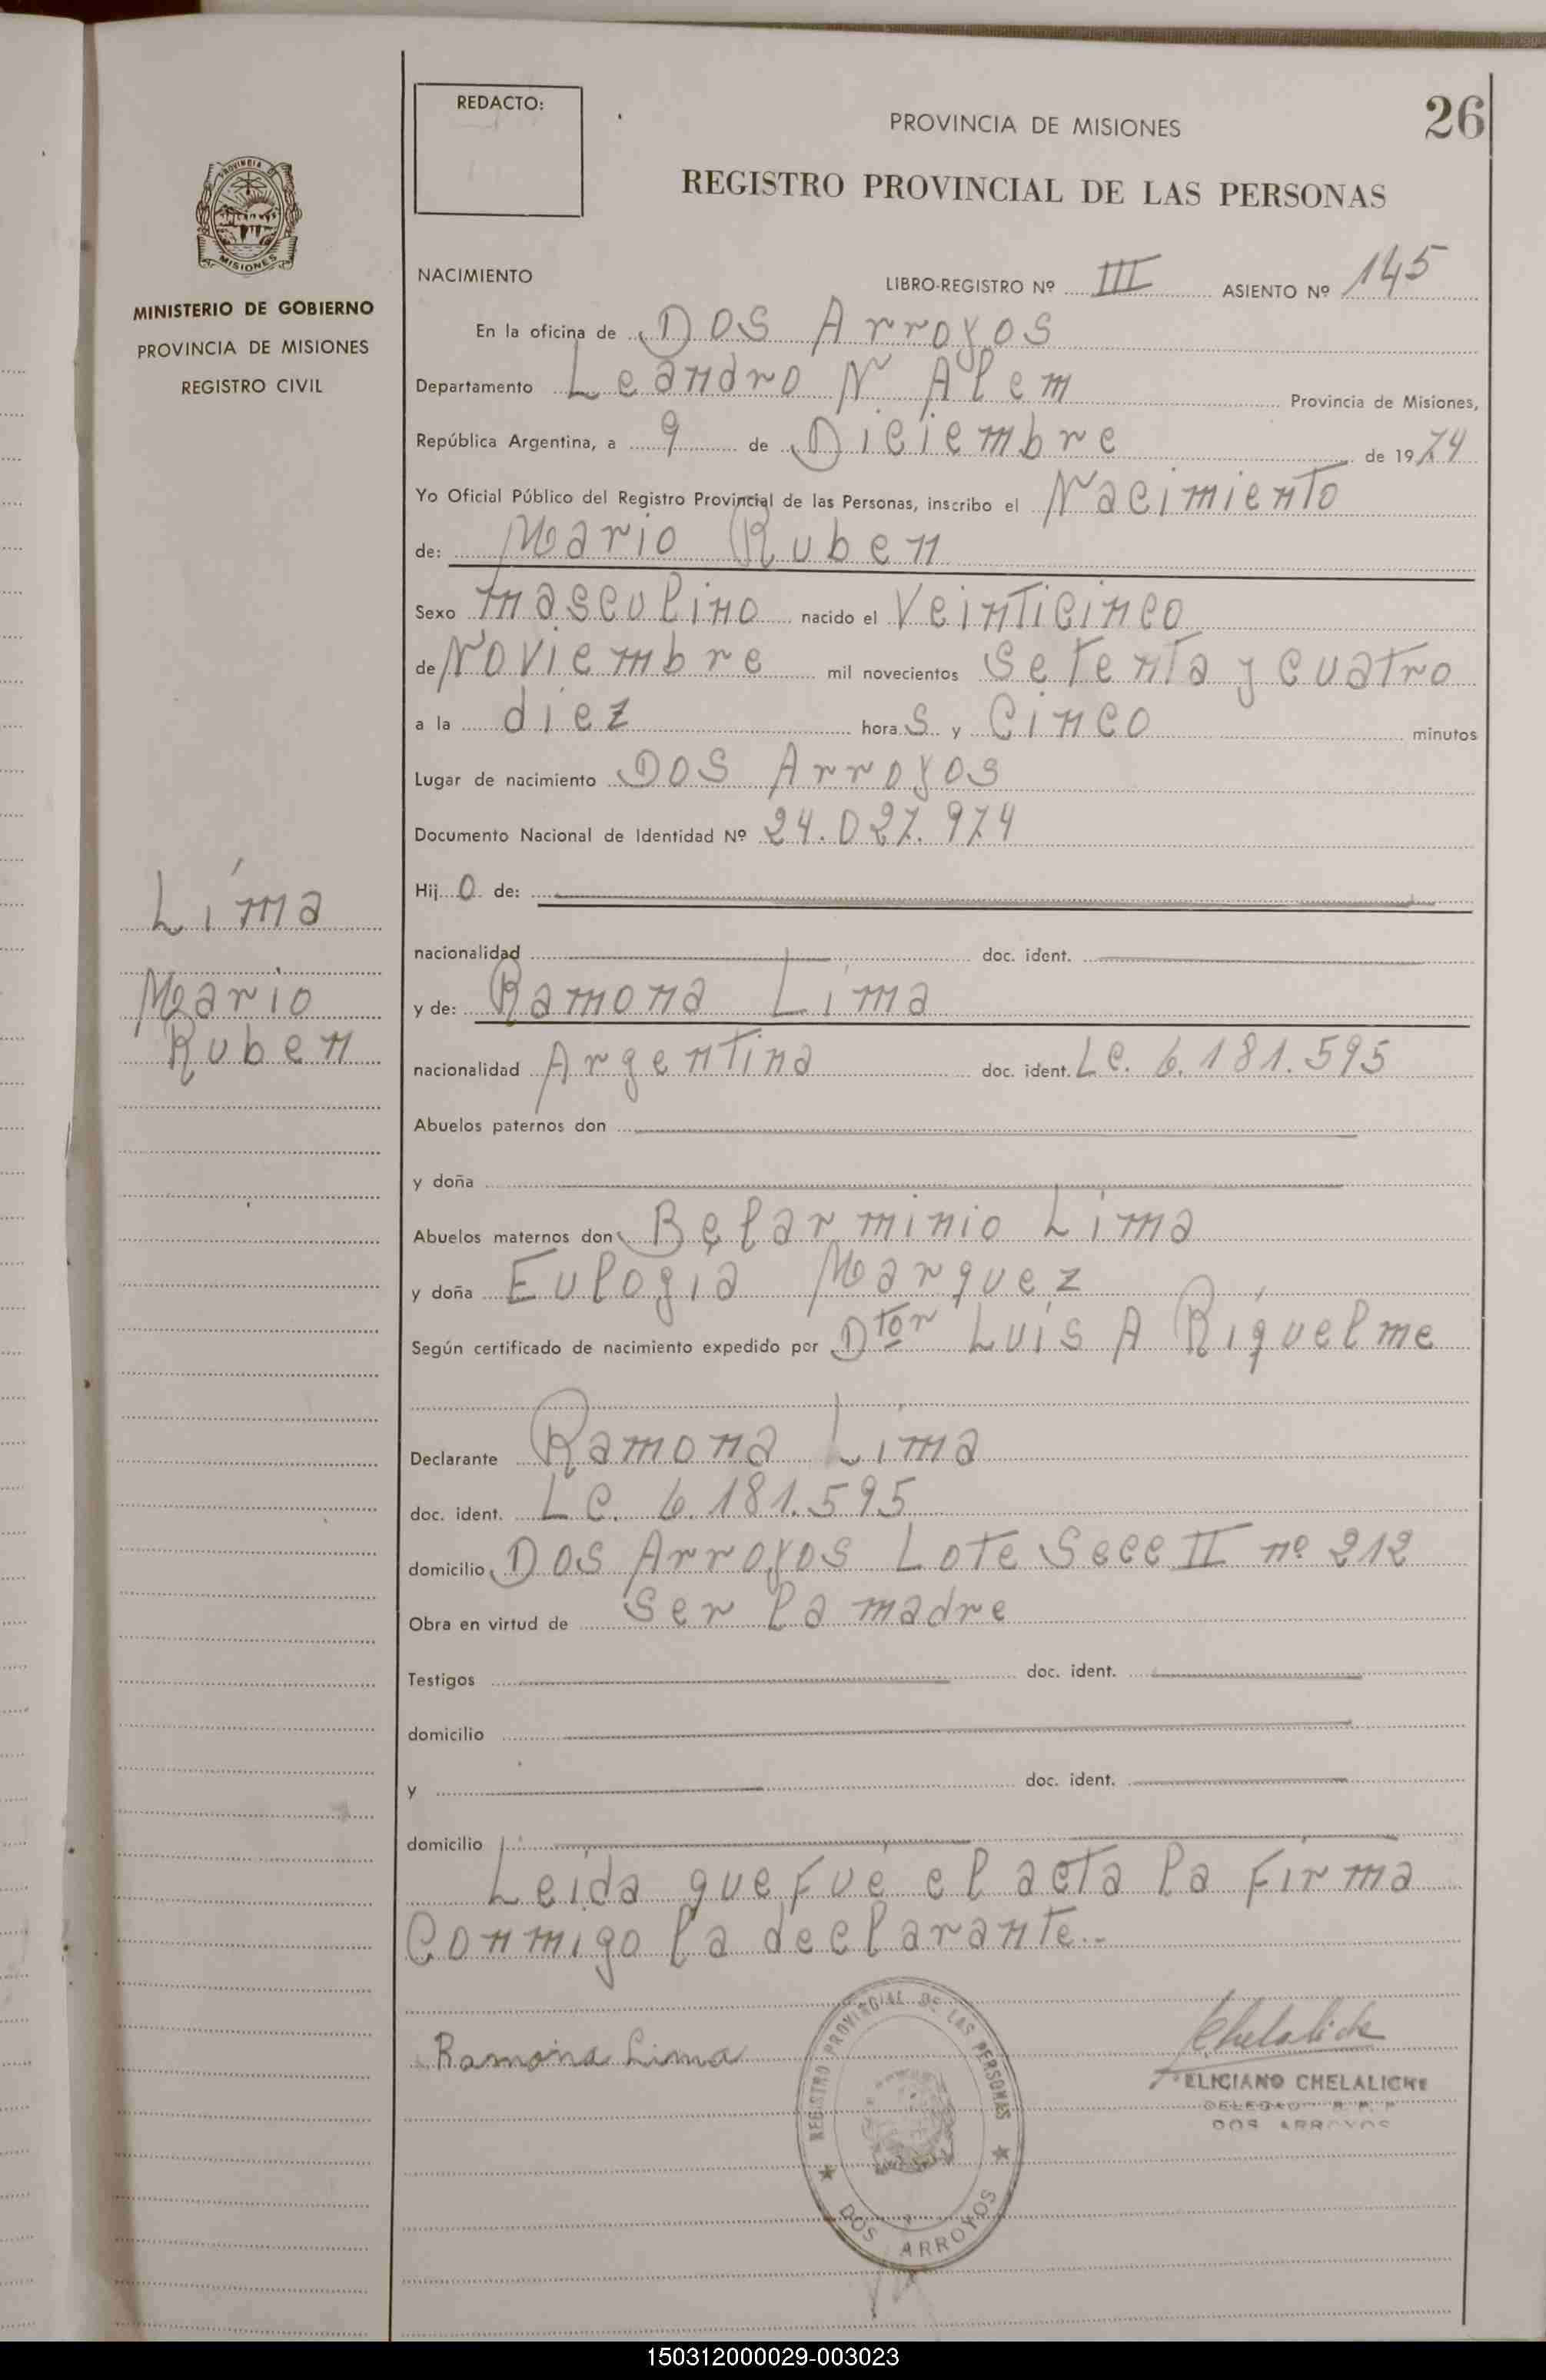 REDACTO:
PROVINCIA DE MISIONES
26
REGISTRO PROVINCIAL DE LAS PERSONAS
PROVINCIA DE
MISIONES
MINISTERIO DE GOBIERNO
PROVINCIA DE MISIONES
REGISTRO CIVIL
NACIMIENTO LIBRO-REGISTRO Nº III ASIENTO Nº 145
En la oficina de Dos Arroyos
Departamento Leandro N. Alem Provincia de Misiones,
República Argentina, a 9 de Diciembre de 1974
Yo Oficial Público del Registro Provincial de las Personas, inscribo el Nacimiento
de: Mario Ruben
Sexo masculino nacido el Veinticinco
de Noviembre mil novecientos setenta y cuatro
a la diez hora s y Cinco minutos
Lugar de nacimiento Dos Arroyos
Documento Nacional de Identidad Nº 24.027.974
Hij o de:
nacionalidad doc. ident.
y de: Ramona Lima
nacionalidad Argentina doc. ident. LC. 6.181.595
Abuelos paternos don
y doña
Abuelos maternos don Belarminio Lima
y doña Eulogia Marquez
Según certificado de nacimiento expedido por Dtor Luis A Riquelme
Declarante Ramona Lima
doc. ident. LC. 6.181.595
domicilio Dos Arroyos Lote Secc II nº 212
Obra en virtud de ser la madre
Testigos doc. ident.
domicilio
y doc. ident.
domicilio
Leida que fué el acta la firma
Conmigo la declarante.-
Lima
Mario
Ruben
Ramona Lima
REGISTRO PROVINCIAL DE LAS PERSONAS
DOS ARROYOS
Chelalicke
FELICIANO CHELALICKE
DELEGADO R. P. P
DOS ARROYOS
150312000029-003023